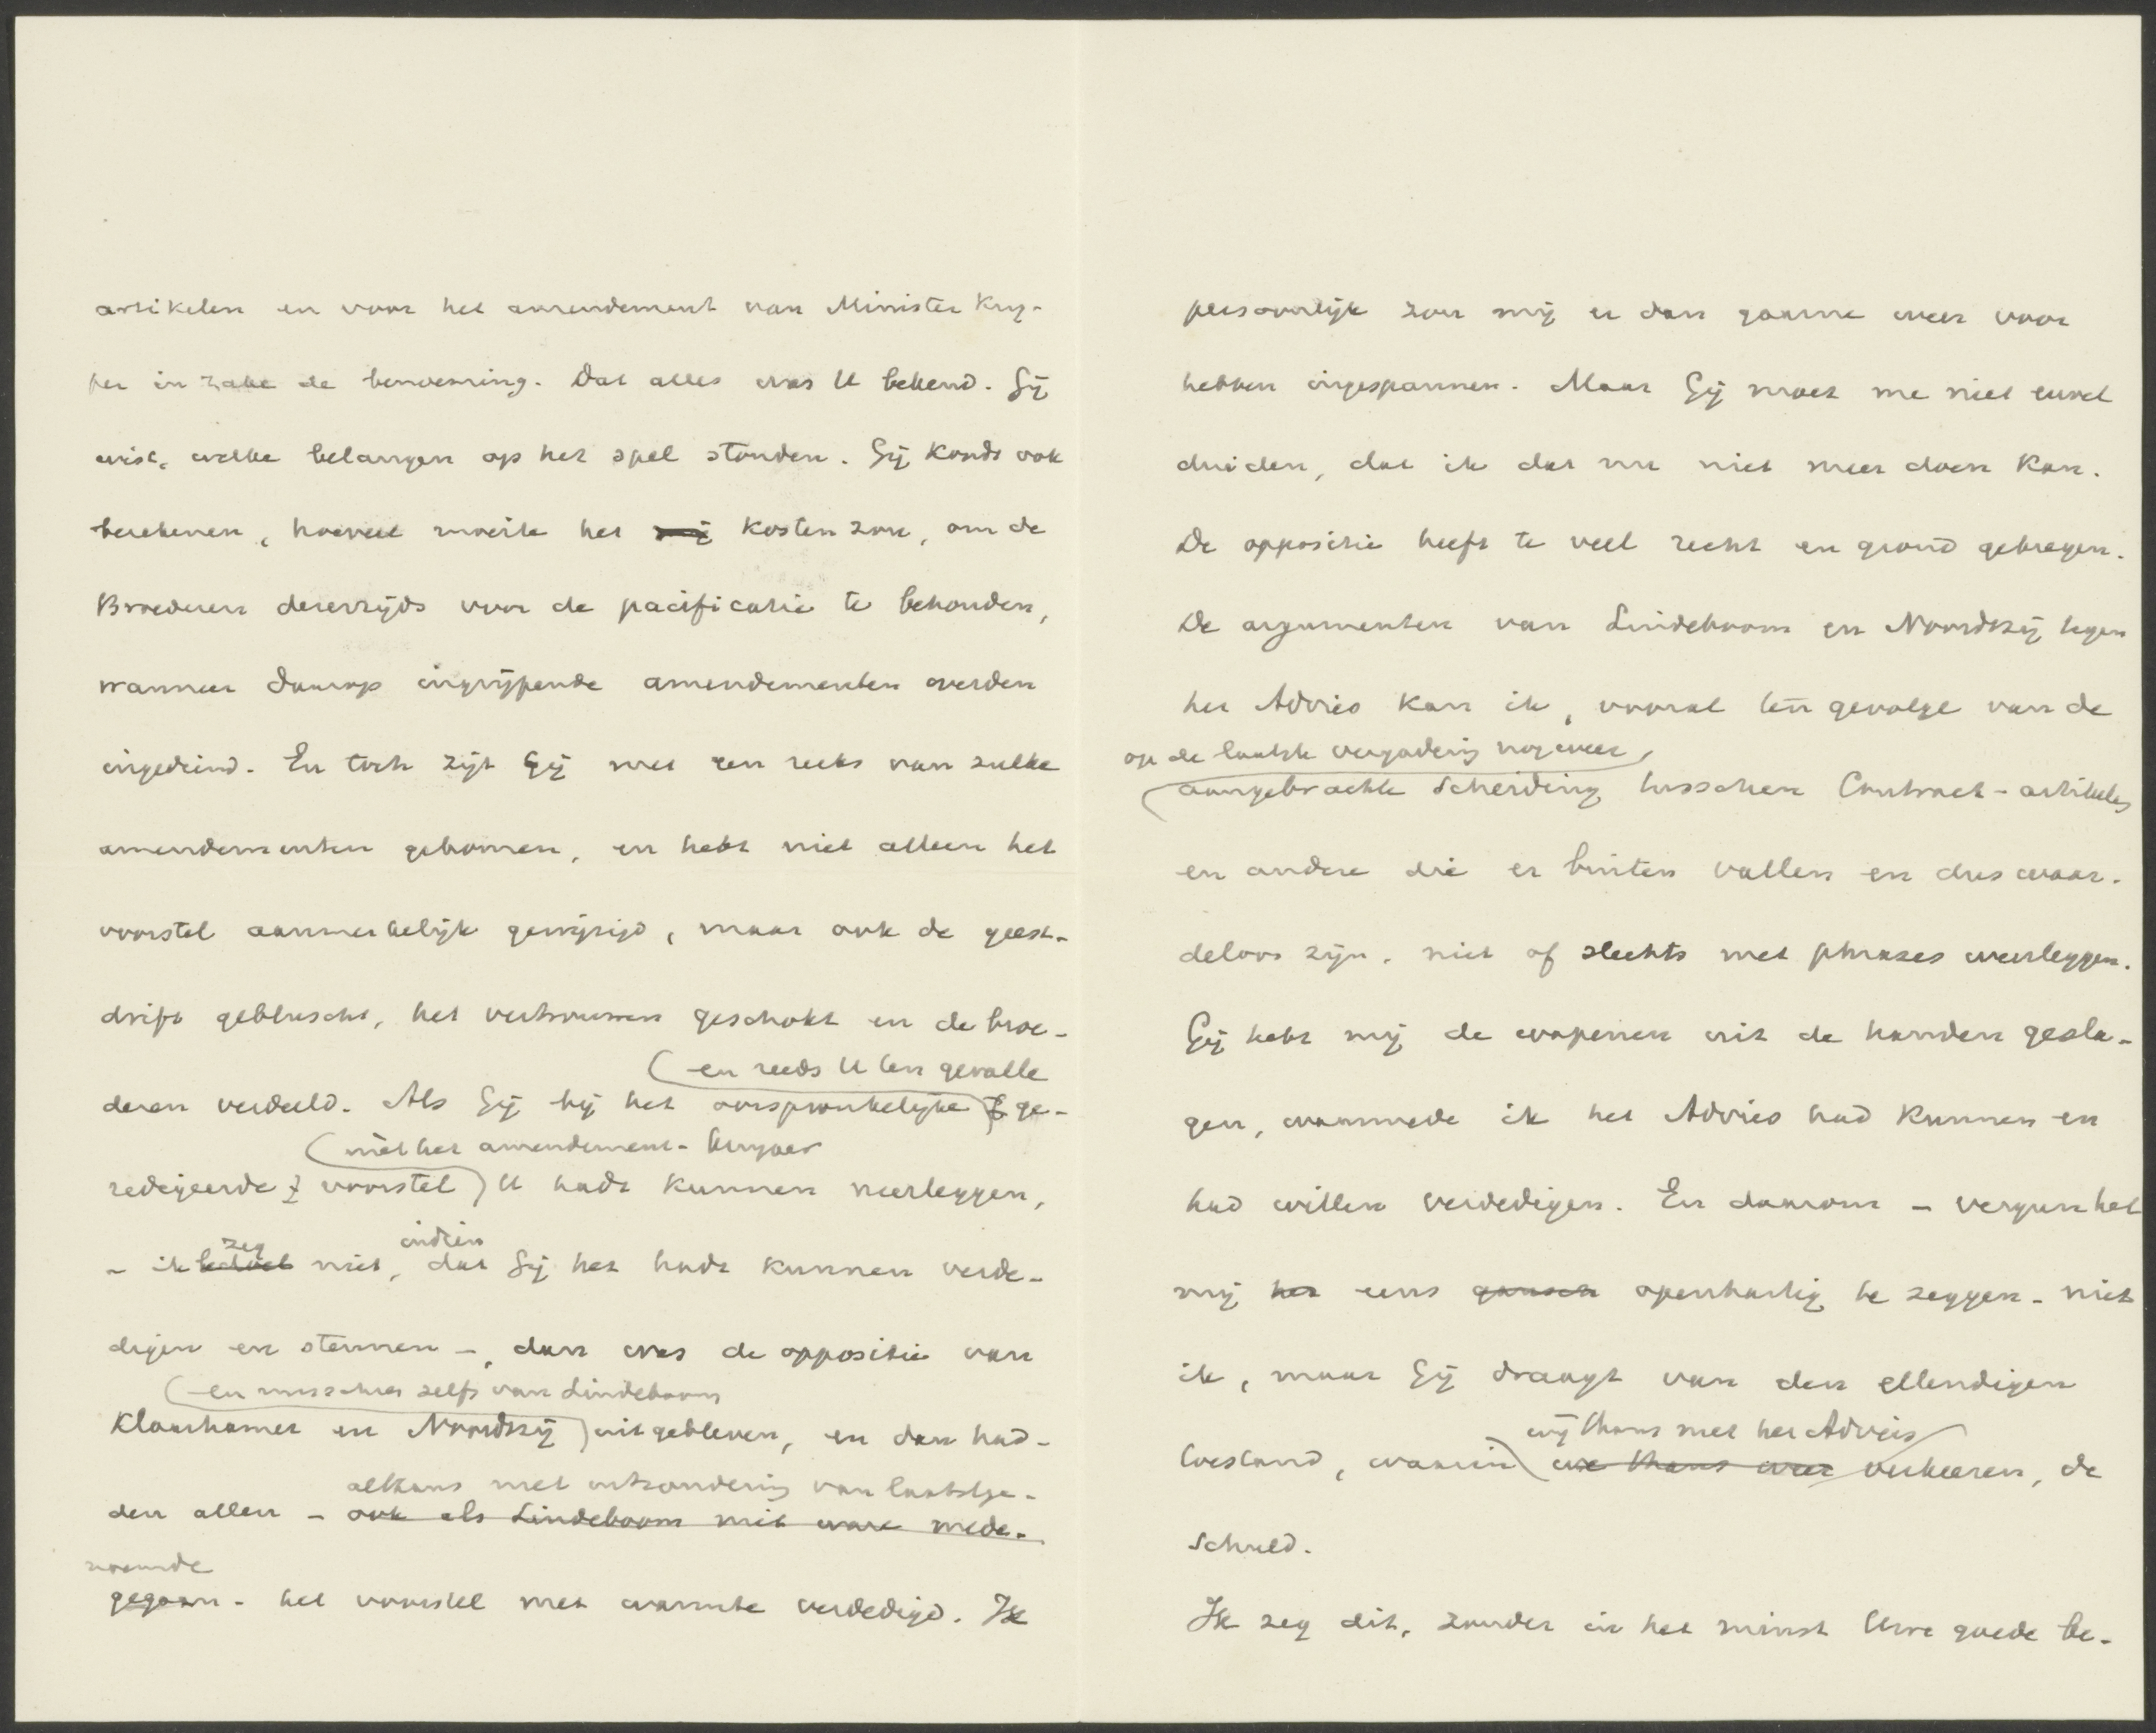 artikelen en voor het amendement van Minister Kuy-
per in zake de benoeming. Dat alles was U bekend. Gij
wist, welke belangen op het spel stonden. Gij kondt ook
berekenen, hoeveel moeite het mij kosten zou, om de
Broederen dererzijds voor de pacificatie te behouden,
wanneer daarop ingrijpende amendementen werden
ingediend. En toch zijt Gij met een reeks van zulke
amendementen gekomen, en hebt niet alleen het
voorstel aanmerkelijk gewijzigd, maar ook de geest-
drift gebluscht, het vertrouwen geschokt en de broe-
(en reeds U ten gevalle
deren verdeeld. Als Gij bij het oorspronkelijke) ge-
(mèt het amendement-Kuyper
redigeerde voorstel) U hadt kunnen neerleggen,
zeg indien
- ik bedoel niet, dat Gij het hadt kunnen verde-
digen en steunen -, dan was de oppositie van
(en misschien zelfs van Lindeboom
Klaarhamer en Noordtzij) uitgebleven, en dan had-
althans met uitzondering van laatstge-
den allen - ook als Lindeboom niet ware mede-
noemde
gegaan - het voorstel met warmte verdedigd. Ik
persoonlijk zou mij er dan gaarne weer voor
hebben ingespannen. Maar Gij moet me niet euvel
duiden, dat ik dat nu niet meer doen kan.
De oppositie heeft te veel recht en grond gekregen.
De argumenten van Lindeboom en Noordtzij tegen
het Advies kan ik, vooral ten gevolge van de
op de laatste vergadering nog weer
(aangebrachte scheiding tusschen Contract-artikelen
en andere die er buiten vallen en dus waar-
deloos zijn, niet of slechts met phrases weerleggen.
Gij hebt mij de wapenen uit de handen gesla-
gen, waarmede ik het Advies had kunnen en
had willen verdedigen. En daarom - vergun het
mij het eens gansch openhartig te zeggen - niet
ik, maar Gij draagt van den ellendigen
wij thans met het Advies
toestand, waarin we thans weer verkeeren, de
schuld.
Ik zeg dit, zonder in het minst Uwe goede be-